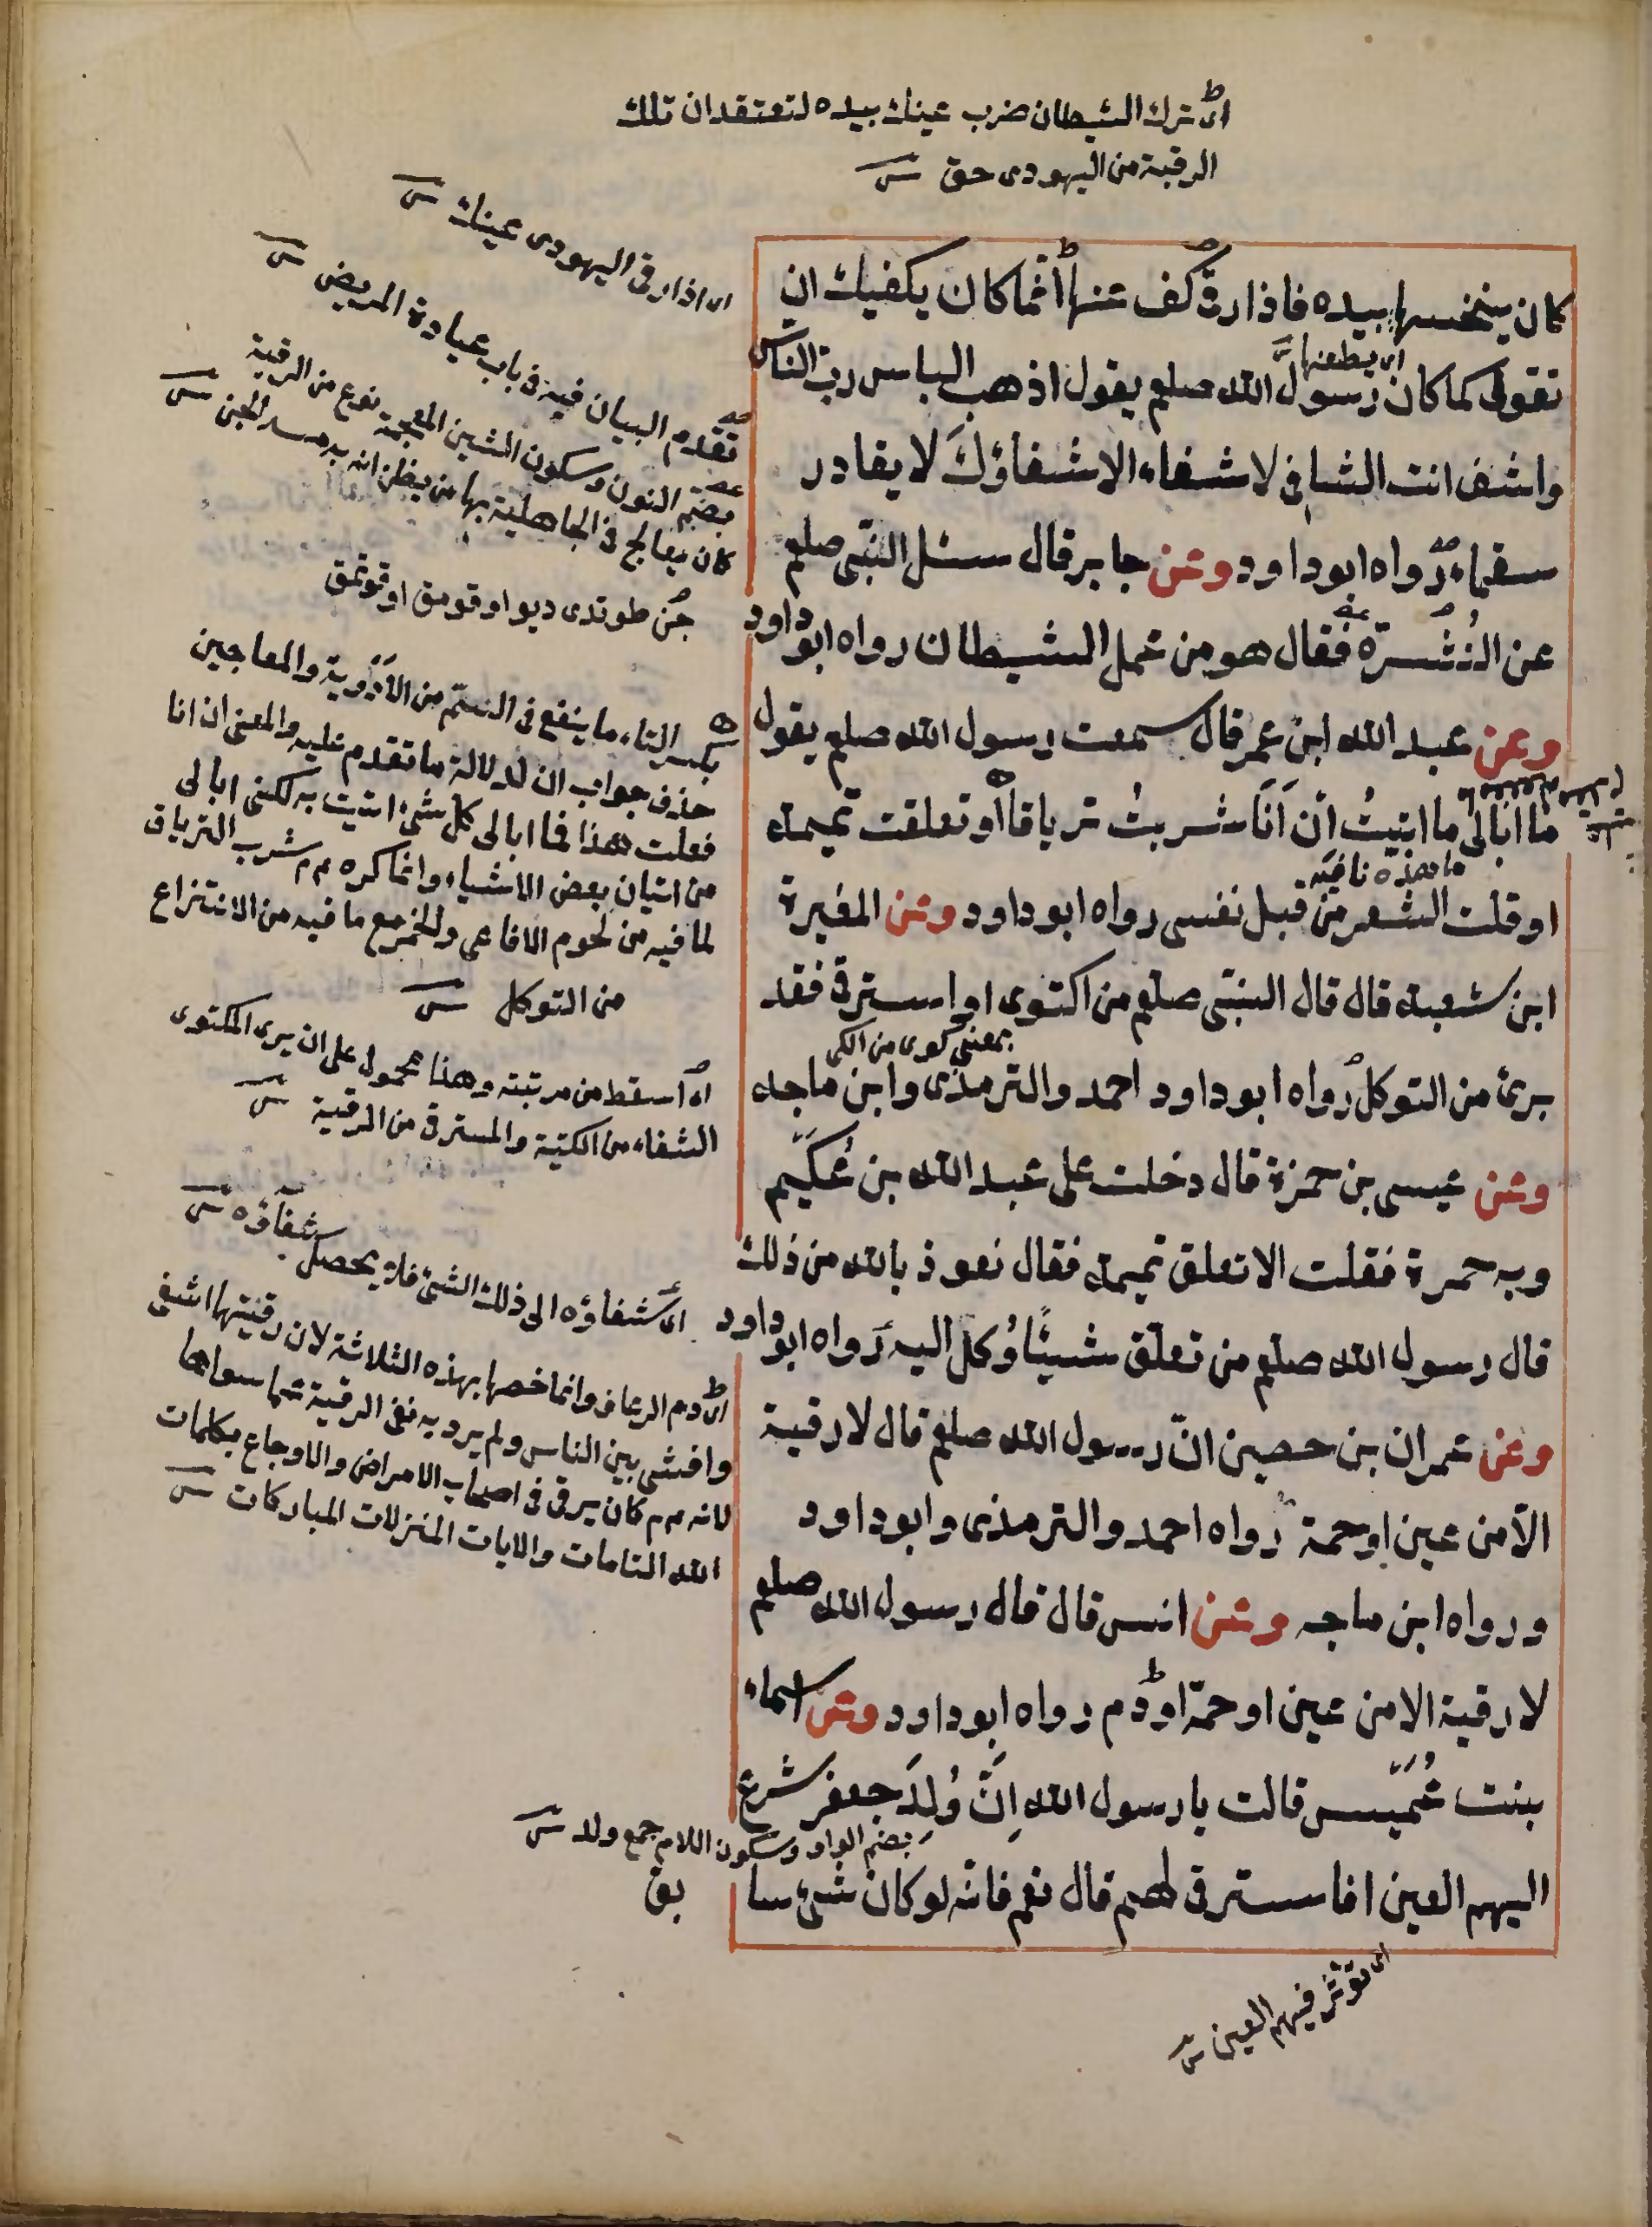 اى ترك الشيطان ضرب عينك بيده لتعتقد ان تلك
الرقية من اليهودى حق
اى اذا رقى اليهودى عينك
كان ينخسها بيده فاذا رقى كف عنها انما كان يكفيك ان
اى يطعنها
تقولى كما كان رسول الله صلعم يقول اذهب الباس رب الناس
واشف انت الشافى لا شفاء الا شفاؤك لا يغادر
سقما رواه ابو داود وعن جابر قال سئل النبى صلعم
عن النُشرة فقال هو من عمل الشيطان رواه ابو داود
وعن عبد الله ابن عمر قال سمعت رسول الله صلعم يقول
ما ابالى ما اتيتُ ان اَنَا شربتُ ترياقا او تعلقت تميمة
ما هذه نافية
او قلت الشعر من قبل نفسى رواه ابو داود وعن المغيرة
ابن شعبة قال قال النبى صلعم من اكتوى او استرقى فقد
بمعنى كوى من الكى
برئ من التوكل رواه ابو داود احمد والترمذى وابن ماجه
وعن عيسى بن حمزة قال دخلت على عبد الله بن عُكَيم
وبه حمرة فقلت الا تعلق تميمة فقال نعوذ بالله من ذلك
قال رسول الله صلعم من تعلّق شيئًا وُكل اليه رواه ابو داود
وعن عمران بن حصين انّ رسول الله صلعم قال لا رقية
الّا من عين او حمة رواه احمد والترمذى وابو داود
ورواه ابن ماجه وعن انس قال قال رسول الله صلعم
لا رقية الا من عين او حمّة او دم رواه ابو داود وعن اسماء
بنت عُمَيس قالت يا رسول الله اِنّ وُلِدَ جعفر تسرع
بضم الواو وسكون اللام جمع ولد
اليهم العين افاسترقى لهم قال نعم فانّه لو كان شئ سا
بق
اى تؤثر فيهم العين
تقدم البيان فيه فى باب عيادة المريض
بضم النون وسكون الشين المعجمة نوع من الرقية
كان يعالج فى الجاهلية بها من يظن انه به مس الجن
جن طوتدى ديو اوقومق اوقوتمق
بكسر التاء ما ينفع فى السّم من الاَدْوِية والمعاجين
حذف جواب ان لدلالة ما تقدم عليه والمعنى ان انا
فعلت هذا فما ابالى كل شئ اتيت به لكنى ابالى
من اتيان بعض الاشياء وانما كره عم شرب الترياق
لما فيه من لحوم الافاعى والخمر مع ما فيه من الانتزاع
من التوكل
اى اسقط من مرتبته وهذا محمول على ان يرى المكتوى
الشفاء من الكية والمسترقى من الرقية
اى شفاؤه الى ذلك الشئ فلا يحصل
شفاؤه
اى دم الرعاف وانما خصها بهذه الثلاثة لان رقيتها اشفى
وافشى بين الناس ولم يرد به نفى الرقية عما سواها
لانه عم كان يرقى فى اصحاب الامراض والاوجاع بكلمات
الله التامات والايات المنزلات المباركات